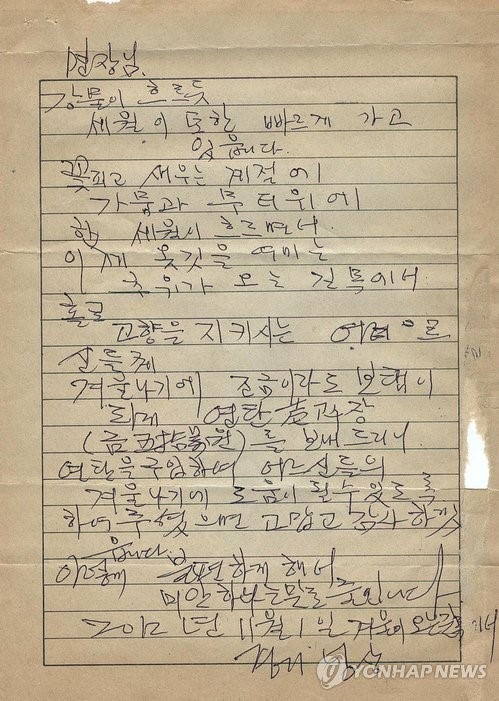 면장님.
강물이 흐르듯
세월이 또한 빠르게 가고
있읍니다.
꽃피고 새우는 계절에
가뭄과 무더위에
한 세월이 흐르면서
이제 옷깃을 여미는
추위가 오는 길목에서
홀로
고향을 지키시는 어려우
신들께
겨울나기에 조금이라도 보탬이
되게 연탄
(금 원)를 보내드리니
연탄을 구입하여 어르신들의
겨울나기에 도움이 될수있도록
하여주셨으면 고맙고 감사하겠
읍니다.
하게 해서
미안하다는말로 줄입니다
2012년 11월 1일 겨울이 오는길목에서
YONHAP NEWS